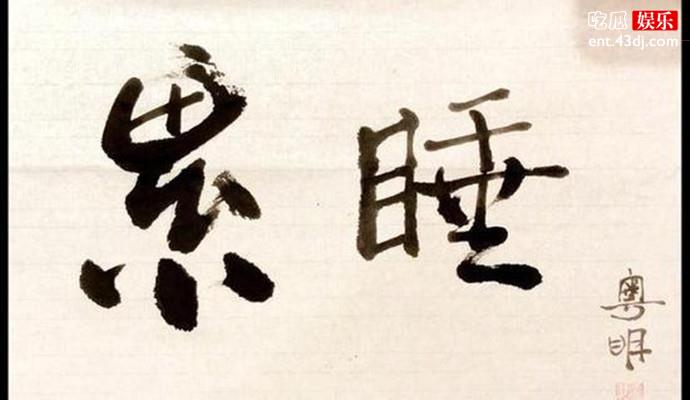 吃瓜 娱乐
ent.43dj.com
累 睡
粤明